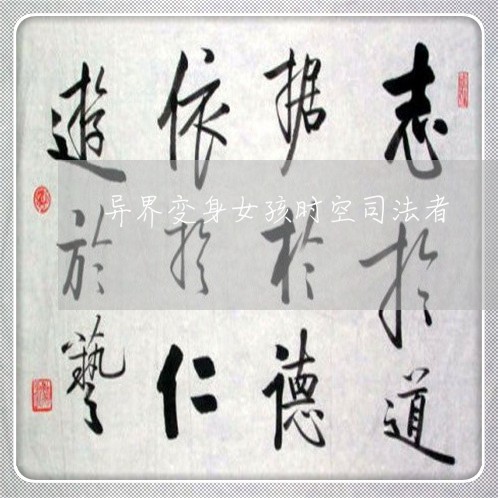 志於道
据於德
依於仁
遊於藝
异界变身女孩时空司法者